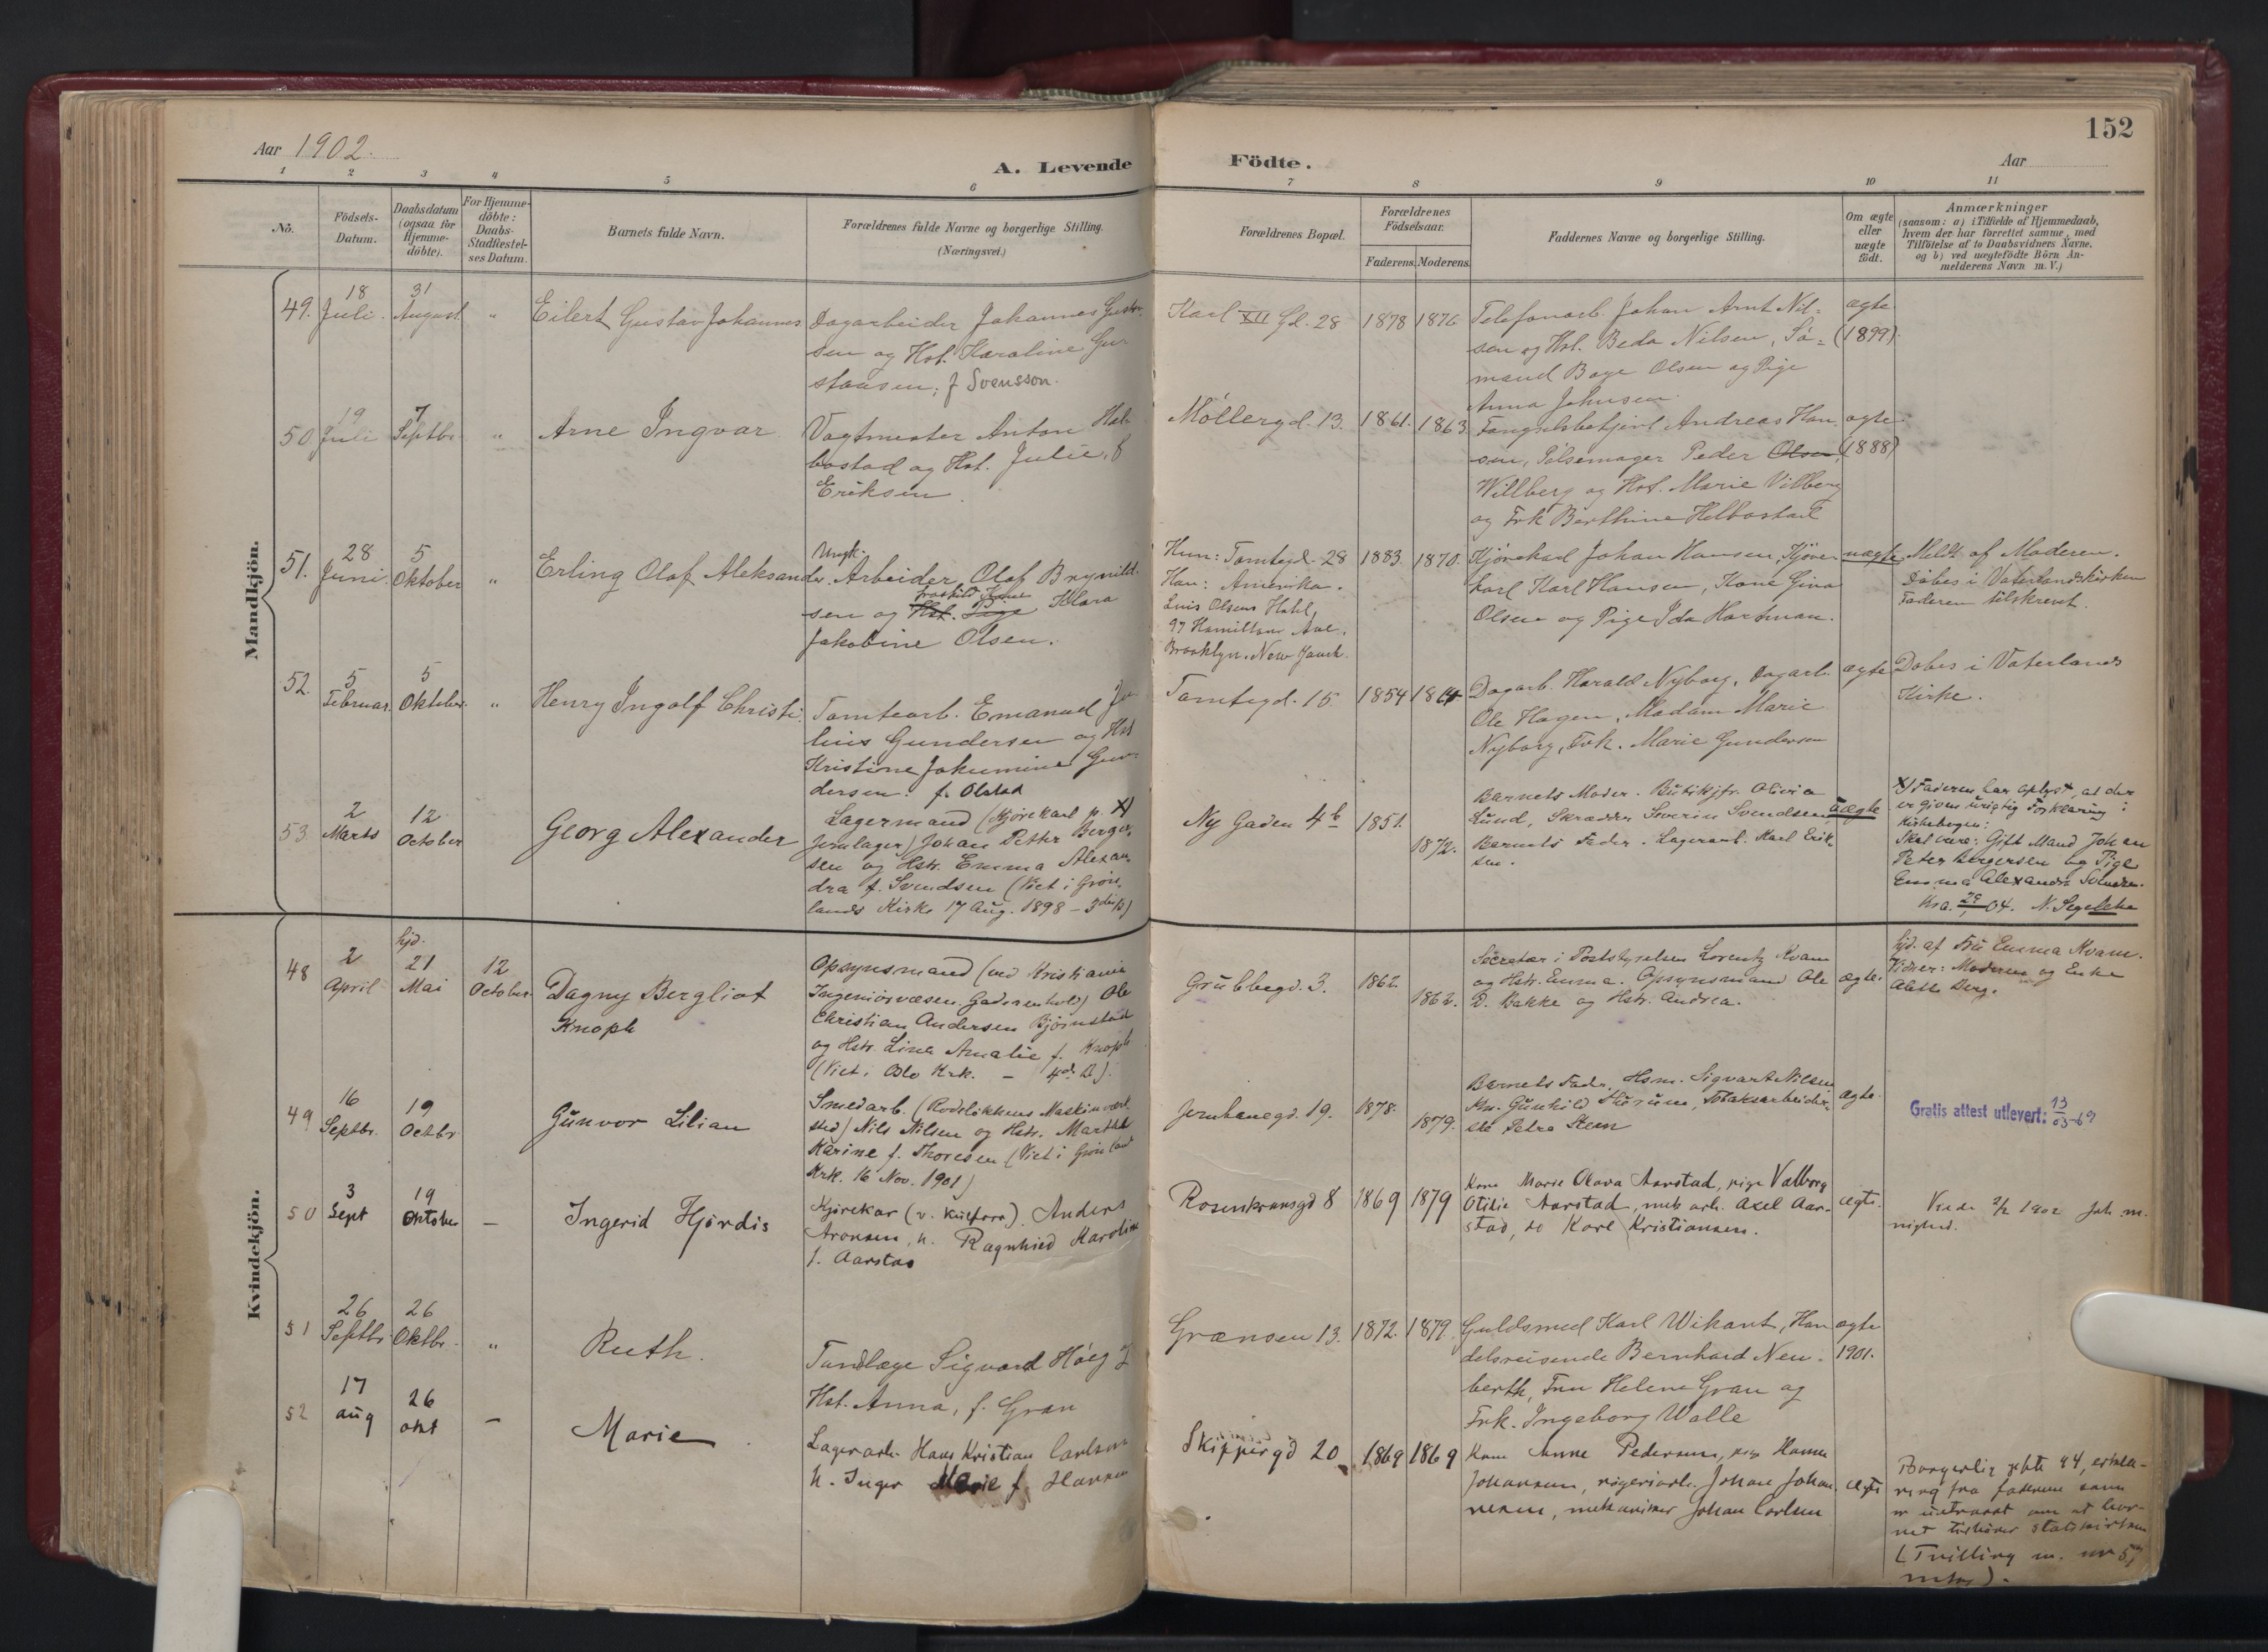 152
Aar 1902.
A. Levende Födte.
Aar
1 2 3 4 5 6 7 8 9 10 11
No.
Födsels-Datum.
Daabsdatum (ogsaa for Hjemme-döbte).
For Hjemme-döbte: Daabs-Stadfæstel-ses Datum.
Barnets fulde Navn.
Forældrenes fulde Navne og borgerlige Stilling.
(Næringsvei.)
Forældrenes Bopæl.
Forældrenes Födselsaar.
Faderens. Moderens.
Faddernes Navne og borgerlige Stilling.
Om ægte eller uægte födt.
Anmærkninger
(saasom: a) i Tilfælde af Hjemmedaab,
hvem der har forrettet samme, med
Tilföielse af to Daabsvidners Navne,
og b) ved uægtefödte Börn An-
melderens Navn m. V.)
Mandkjön.
49. 18 Juli. 31 August. "
Eilert Gustav Johannes
Dagarbeider Johannes Gustav-
sen og Hst. Karoline Gu-
stavsen, f Svensson.
Karl XII Gd. 28
1878 1876
Telefonarb. Johan Arnt Nil-
sen og Hst. Beda Nilsen, Sö-
mand Boye Olsen og Pige
Anna Johnsen.
ægte
(1899)
50 19 Juli 7 Septbr "
Arne Ingvar
Vagtmester Anton Hel-
bostad og Hst. Julie, f
Eriksen.
Möllergd. 13.
1861. 1863.
Fængselsbetjent Andreas Han-
sen, Pölsemager Peder Olsen,
Willberg og Hst. Marie Vilberg
og Frk Berthine Helbostad
ægte
(1888)
51. 28 Juni. 5 Oktober "
Erling Olaf Aleksander.
Ungk.
Arbeider Olaf Brynild-
sen og Hst. Pige Klara
fraskild Kone
Jakobine Olsen.
Hun: Tomtegd. 28
Han: Amerika.
Luis Olsens Hotel,
97 Hamiltone Ave.
Brooklyn. New Jaurk.
1883. 1870.
Kjörekarl Johan Hansen, Kjöre-
karl Karl Hansen, Kone Gina
Olsen og Pige Ida Hartman.
uægte
Meldt af Moderen.
Döbes i Vaterlandskirken
Faderen tilskrevet.
52. 5 Februar. 5 Oktober. "
Henry Ingolf Christi.
Tomtearb. Emanuel Ju-
lius Gundersen og Hst
Kristine Jokumine Gun-
dersen. f. Olstad
Tomtegd. 15
1854
Dagarb. Harald Nyborg, Dagarb.
Ole Hagen, Madam Marie
Nyborg, Frk. Marie Gundersen
ægte
Döbes i Vaterlands
Kirke.
53 2 Marts 12 October
Georg Alexander
Lagermand (Kjörekarl p. X)
Jernlager) Johan Petter Berger-
sen og Hstr. Emma Alexan-
dra f. Svendsen (Viet i Grön-
lands Kirke 17 Aug. 1898 - 3die B)
Ny Gaden 4b
1851.
1872.
Barnets Moder. Butikjfr. Olivia
Lund, Skrædder Severin Svendsen
Barnets Fader. Lagerarb. Karl Erik-
sen.
uægte
X) Faderen har oplyst, at der
er given urigtig Forklaring i
Kirkebogen:
Skal være: Gift Mand Johan
Peter Bergersen og Pige
Emma Alexandra Svendsen.
Kra. 04. N. Segelcke
Kvindekjön.
48 2 April hjd. 21 Mai 12 October.
Dagny Bergliot
Knoph
Opsynsmand (ved Kristiania
Ingeniörvæsen. Gaderenhold) Ole
Christian Andersen Björnstad
og Hstr. Lina Amalie f. Knoph
(Viet i Oslo Krk. - 4de B).
Grubbegd. 3.
1862
1862.
Secretær i Poststyrelsen Lorentz Kvam
og Hstr. Emma. Opsynsmand Ole
D. Bakke og Hstr. Andrea.
ægte.
hjd. af Fru Emma Kvam.
Vidner: Moderen og Enke
Alette Berg.
49 16 Septbr. 19 Octbr
Gunvor Lilian
Smedarb. (Rodelökkens Maskinværk-
sted) Nils Nilsen og Hstr. Marthe
Karine f. Thoresen (Viet i Grönland
Krk. 16 Nov. 1901)
Jernbanegd. 19.
1878.
1879.
Barnets Fader, Hsm. Sigvart Nilsen
Kn. Gunhild, Tobaksarbeider-
ske Petra Steen
ægte.
Gratis attest utlevert: 13/03-69
50 3 Sept 19 Oktober -
Ingerid Hjördis
Kjörekar (v. Kulforr) Anders
Aronsen, h. Ragnhild Karoline
f. Aarstad
Rosenkransgd 8
1869 1879
Kone Marie Olava Aarstad, pige Valborg
Otilie Aarstad, mek arb. Axel Aar-
stad, do Karl Kristiansen.
ægte.
1902 Joh. m.
nighed.
51 26 Septbr. 26 Oktbr. "
Ruth.
Tandlæge Sigvard Höeg
Hst. Anna, f. Gran
Grænsen 13.
1872. 1879.
Guldsmed Karl Wikant, Han-
delsreisende Bernhard Neu-
berth, Fru Helene Gran og
Frk. Ingeborg Walle
ægte
1901.
52 17 aug 26 okt -
Marie
Lagerarb. Hans Kristian Carlsen
h. Inger Marie f. Hansen
Skippergd 20
1869 1869
Kone Anne Pedersen, pige Hanna
Johansen, Johan Johan-
nesen, mekaniker Johan Carlsen
ægte
Borgerlig gifte 94, erklæ-
ring fra faderen som
er utraadt om at bar-
net tilhører statskirken
(Tvilling m. nr 5